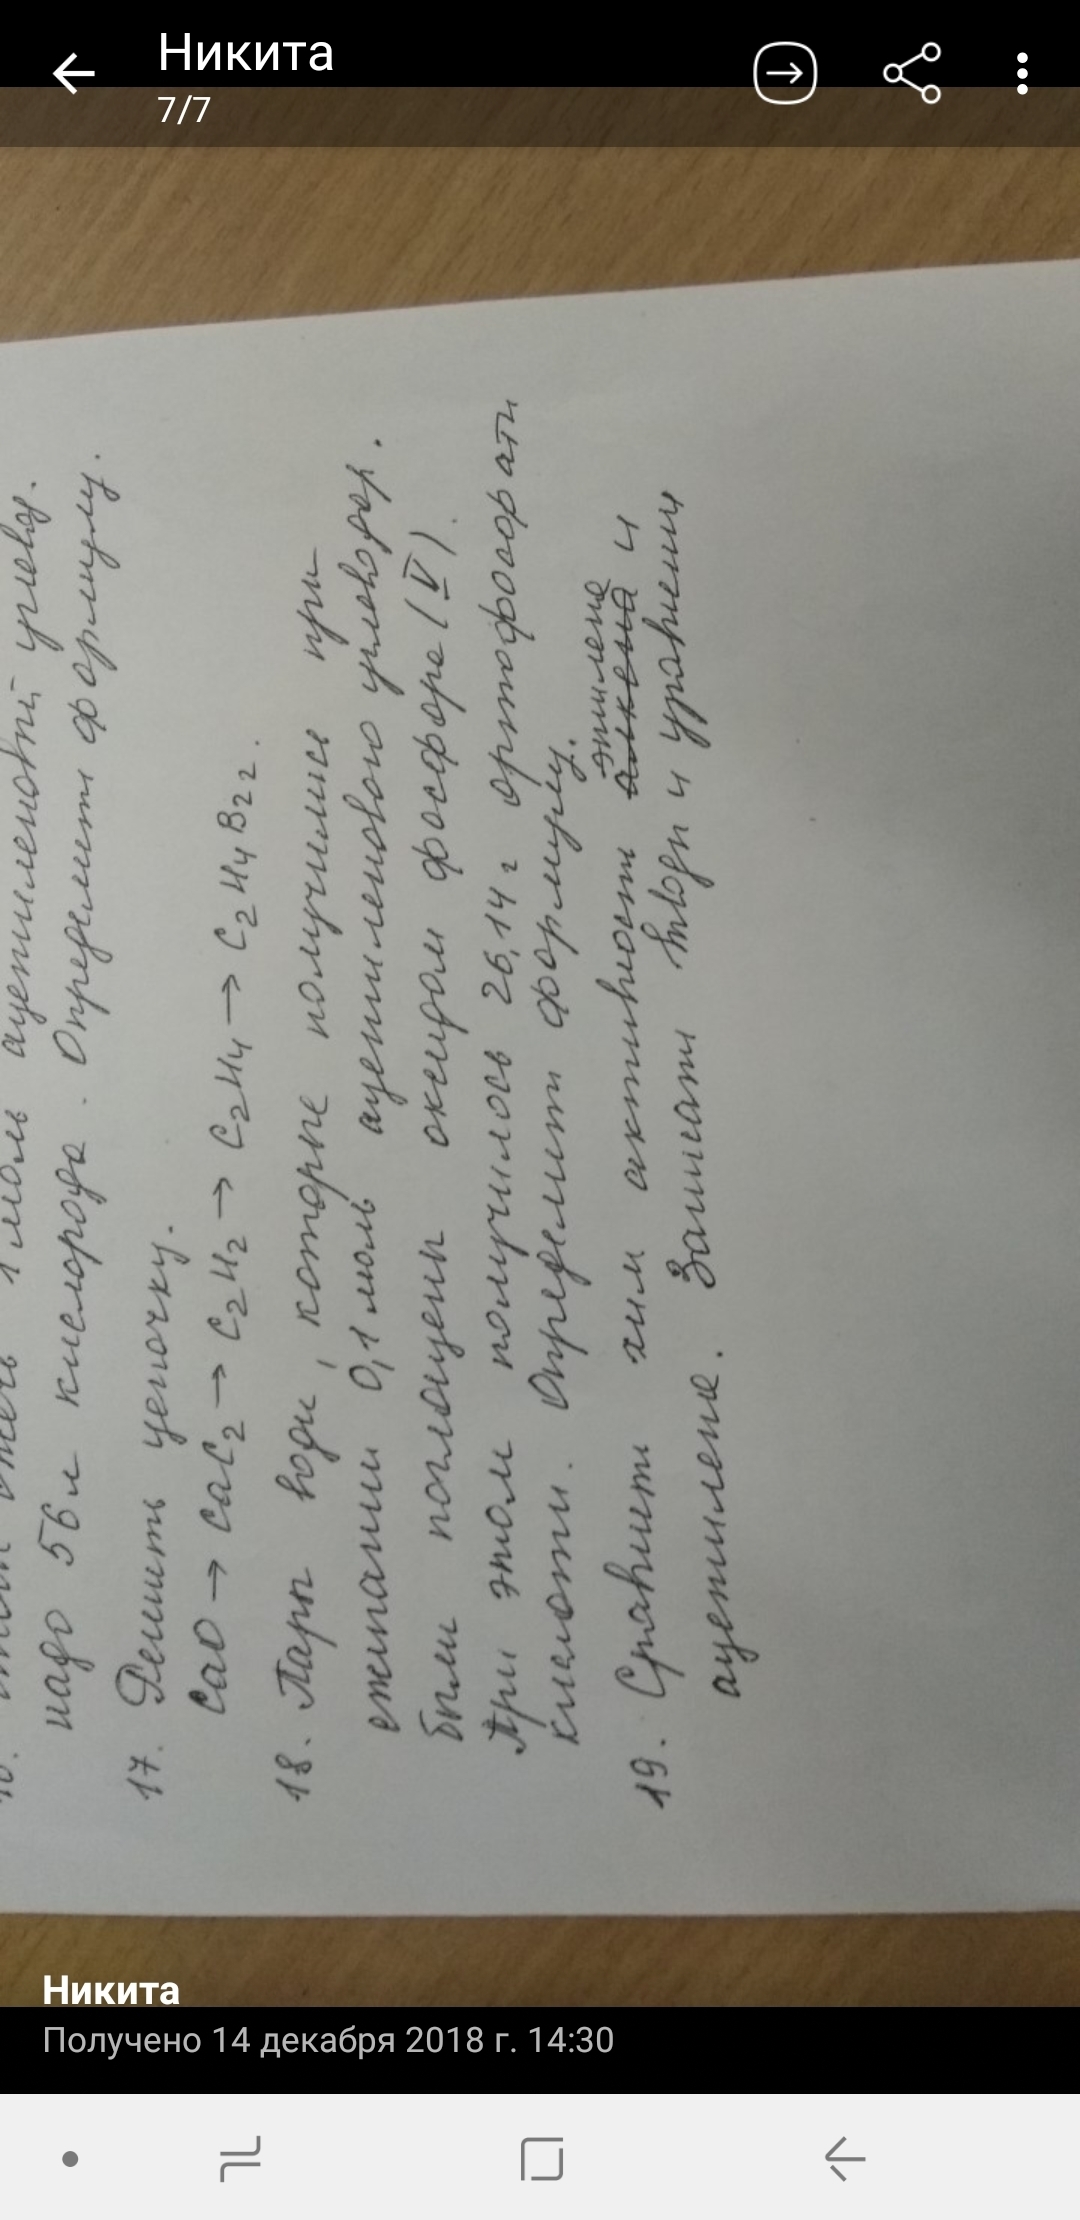 Никита
7/7
1 моль ацетиленовый углевод.
надо 56 л кислорода. Определить формулу.
17. Решить цепочку.
CaO → CaC2 → C2H2 → C2H4 → C2H4B22.
18. Пары воды, которые получились при
сжигании 0,1 моль ацетиленового углеводор.
были поглощены оксидом фосфора (V).
При этом получилось 26,14 г ортофосфорати
кислоти. Определить формулу.
этилена
19. Сравнить хим активность алкена и
ацетилена. Записать вывод и уравнении
Никита
Получено 14 декабря 2018 г. 14:30